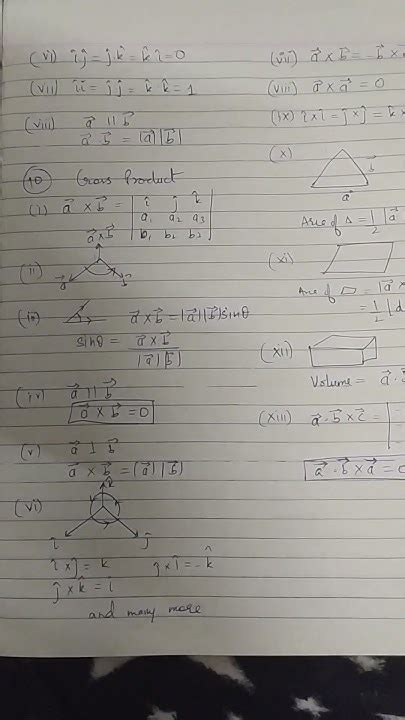 (vi) î ĵ = ĵ·k̂ = k̂ î = 0
(vii) î î = ĵ ĵ = k̂ k̂ = 1
(viii) a⃗ || b⃗
a⃗ · b⃗ = |a⃗| |b⃗|
(10) Cross Product
(i) a⃗ × b⃗ = | î ĵ k̂ |
| a₁ a₂ a₃ |
| b₁ b₂ b₃ |
(ii) a⃗×b⃗
a⃗ b⃗
a⃗ × b⃗ = |a⃗| |b⃗| sinθ
sinθ = a⃗ × b⃗ / |a⃗| |b⃗|
(iv) a⃗ || b⃗
a⃗ × b⃗ = 0
(v) a⃗ ⊥ b⃗
a⃗ × b⃗ = |a⃗| |b⃗|
(vi) k̂
î ĵ
î × ĵ = k̂ ĵ × î = -k̂
ĵ × k̂ = î
and many more
(vii) a⃗ × b⃗ = - b⃗ ×
(viii) a⃗ × a⃗ = 0
(ix) î × î = ĵ × ĵ = k̂ ×
(x) b⃗
a⃗
Area of Δ = 1/2 |a⃗
(xi)
Area of ▱ = |a⃗ ×
= 1/2 |d
(xii)
Volume = a⃗ ·
(xiii) a⃗ · b⃗ × c⃗ =
a⃗ · b⃗ × a⃗ = 0